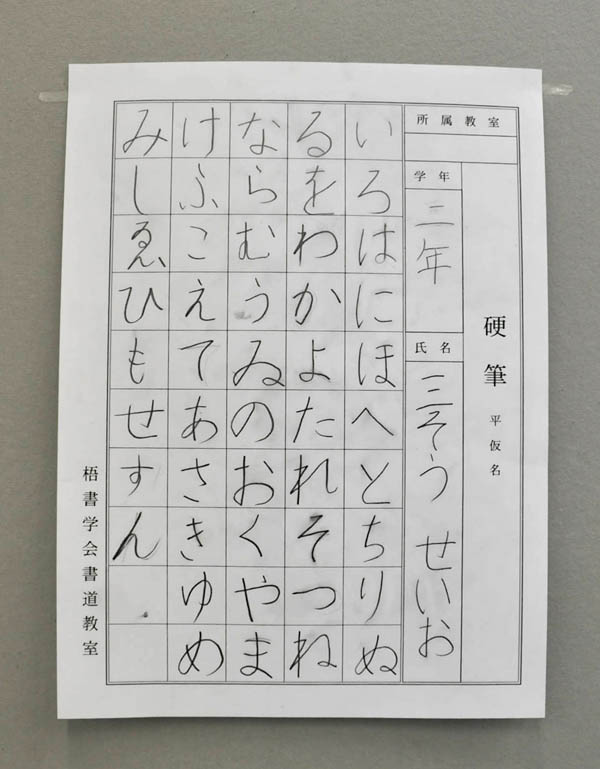 硬筆 平仮名
所属教室
学年
二年
氏名
三そう せいお
いろはにほへとちりぬ
るをわかよたれそつね
ならむうゐのおくやま
けふこえてあさきゆめ
みしゑひもせすん
梧書学会書道教室